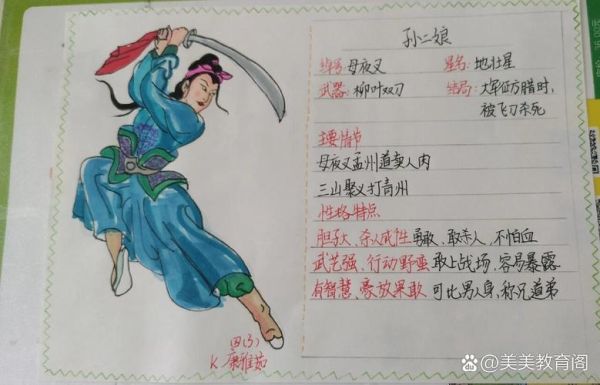 孙二娘
绰号:母夜叉 星名:地壮星
武器:柳叶双刀 结局:大军征方腊时,
被飞刀杀死
主要情节
母夜叉孟州道卖人肉
三山聚义打青州
性格特点
胆子大、杀人成性 勇敢、敢杀人,不怕血
武艺强、行动野蛮 敢上战场、容易暴露
有智慧、豪放果敢 可比男人身,称兄道弟
四(3)
K 康雅茹
头条 @美美教育阁